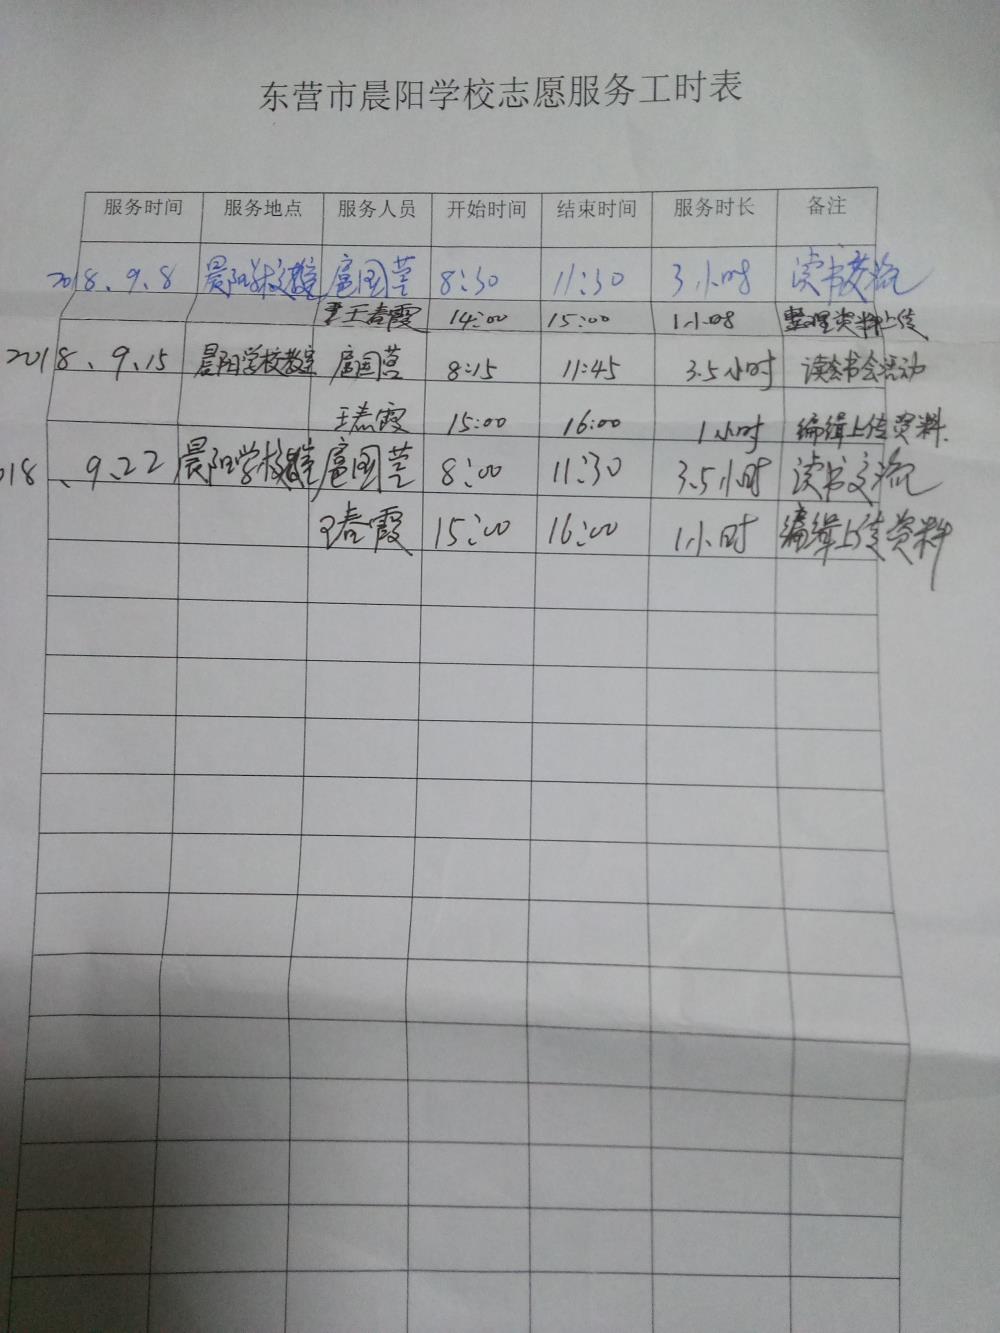 东营市晨阳学校志愿服务工时表
服务时间 服务地点 服务人员 开始时间 结束时间 服务时长 备注
2018、9、8 晨阳学校教室 扈国莹 8:30 11:30 3小时 读书交流
王春霞 14:00 15:00 1小时 整理资料上传
2018、9、15 晨阳学校教室 扈国莹 8:15 11:45 3.5小时 读书会活动
王春霞 15:00 16:00 1小时 编辑上传资料.
018、9、22 晨阳学校教室 扈国莹 8:00 11:30 3.5小时 读书交流
王春霞 15:00 16:00 1小时 编辑上传资料